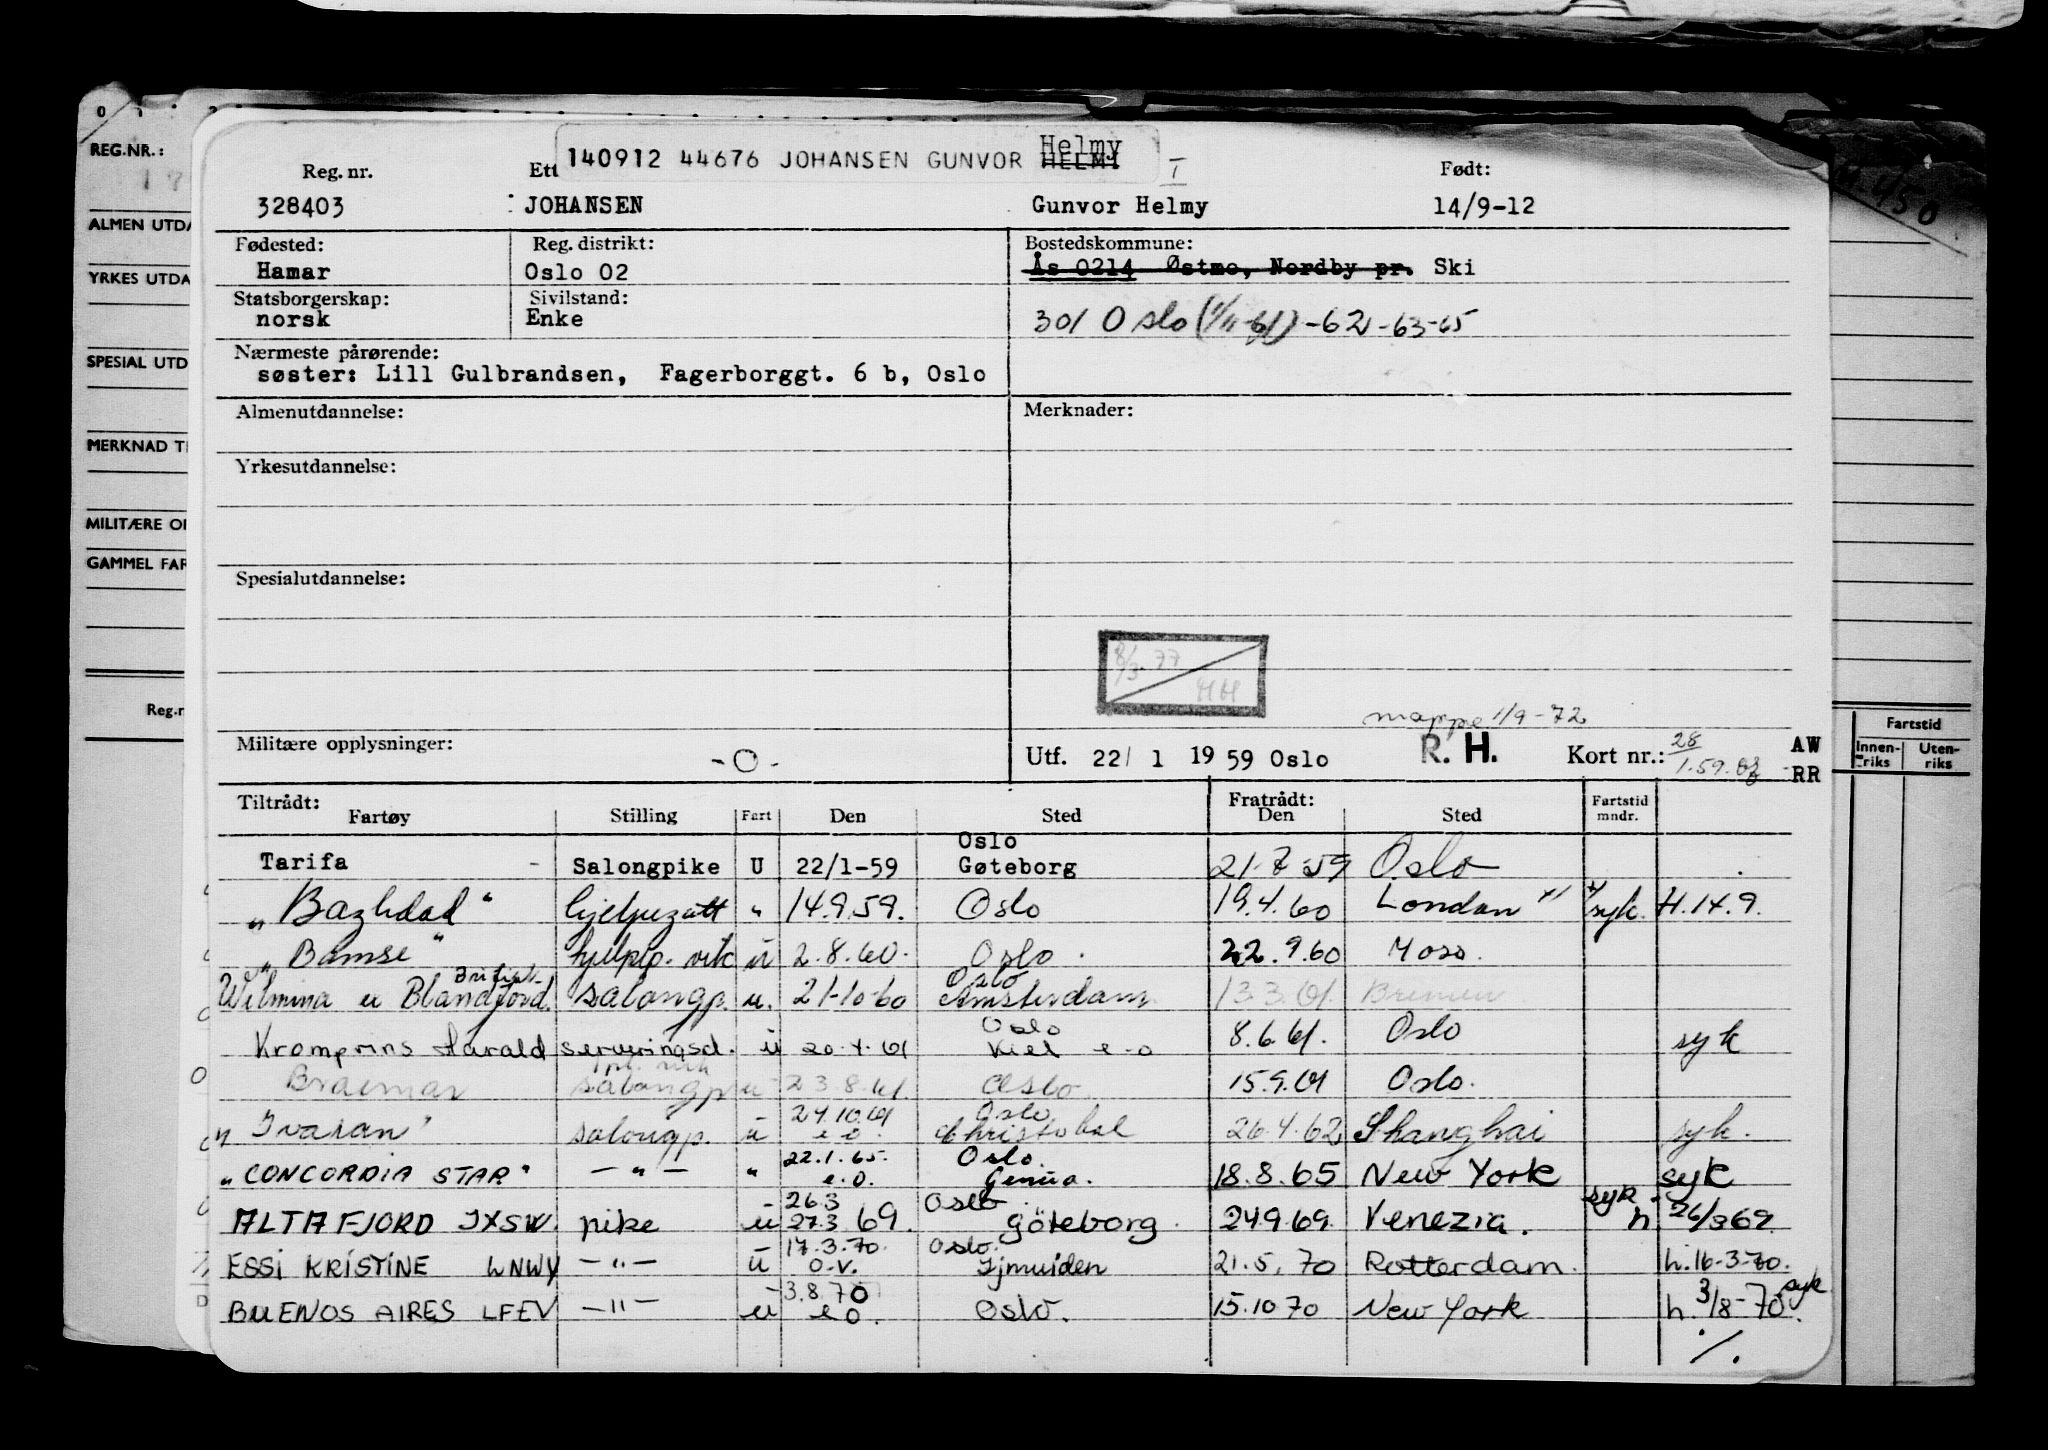 REG.NR.:
ALMEN UTDA
YRKES UTDA
SPESIAL UTD
MERKNAD T
MILITÆRE O
GAMMEL FAR
Reg.n
Fartstid
Innen-riks Uten-riks
140912 44676 JOHANSEN GUNVOR HELMI Helmy
I
Reg. nr. Ett Født:
328403 JOHANSEN Gunvor Helmy 14/9-12
Fødested: Reg. distrikt: Bostedskommune:
Hamar Oslo 02 Ås 0214 Østmo, Nordby pr. Ski
Statsborgerskap: Sivilstand:
norsk Enke 301 Oslo (1/11-61) -62-63-65
Nærmeste pårørende:
søster: Lill Gulbrandsen, Fagerborggt. 6 b, Oslo
Almenutdannelse: Merknader:
Yrkesutdannelse:
Spesialutdannelse:
8/3-77 HH
mappe 1/9-72
Militære opplysninger: -0- Utf. 22/ 1 1959 Oslo R. H. Kort nr.: 28/1.59. AW
RR
Tiltrådt: Fratrådt: Fartstid
Fartøy Stilling Fart Den Sted Den Sted mndr.
Oslo
Tarifa - Salongpike U 22/1-59 Gøteborg 21.7.59 Oslo
"Bazhdad" " 14.9.59. Oslo 19.4.60 London x) x) syk. H.14.9.
"Bamse" u 2.8.60. Oslo. 22.9.60 Moss.
Oslo
Wilmina salongp. u. 21-10-60 Amsterdam 13.3.61. Bremen
Oslo
Kromprins Harald serveringsd. u 20.4.61 Kiel e.o 8.6.61. Oslo syk
Braemar salongp u 23.8.61. Oslo. 15.9.61 Oslo.
24.10.61 Oslo
"Ivaran" salongp. u e.o. Christobal 26.4.62 Shanghai syk.
22.1.65. Oslo.
"CONCORDIA STAR" -"- " e.o. Genua. 18.8.65 New York syk
26.3 Oslo
ALTAFJORD JXSW. pike u 27.3 69. Göteborg 24.9.69. Venezia. syk h 26/3 69
17.3.70. Oslo.
ESSI KRISTINE LNWY -"- u o.v. Ijmuiden 21.5.70 Rotterdam. h.16-3-70.
3.8.70 syk
BUENOS AIRES LFEV -"- u e o. Oslo. 15.10 70 New York h. 3/8-70.
./.